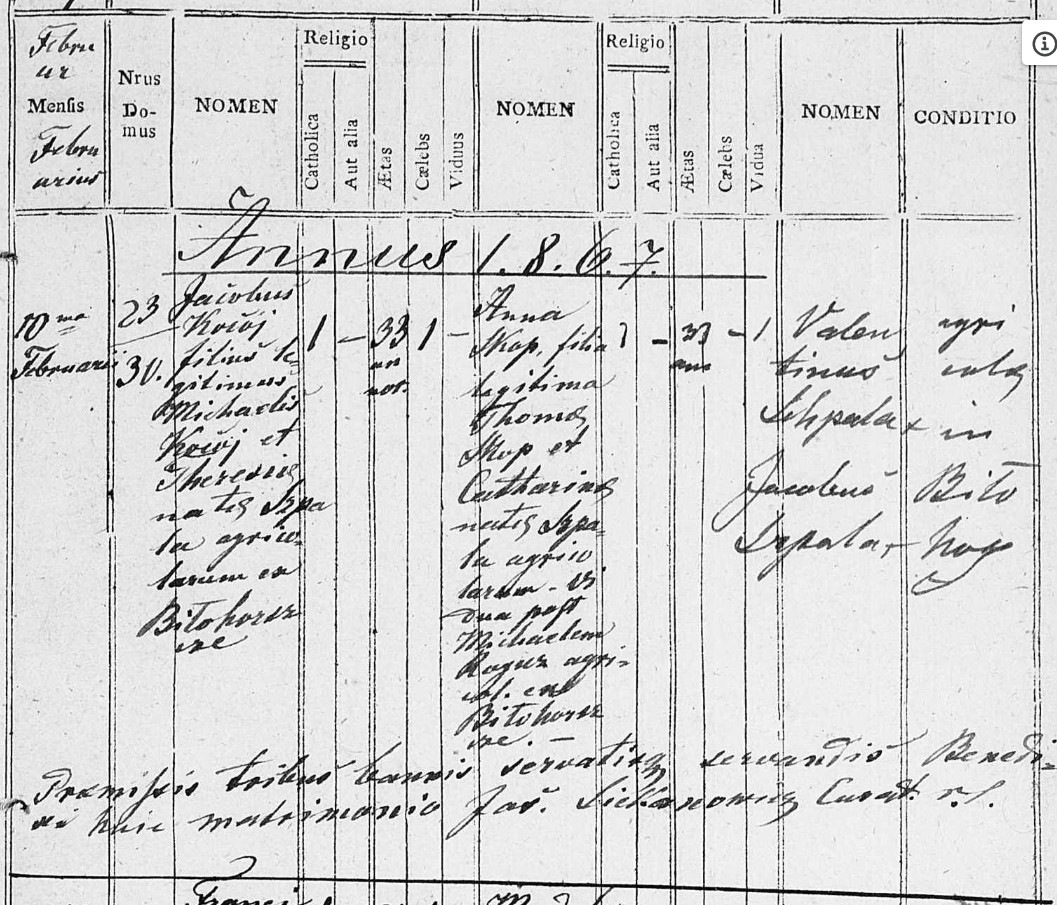 Febru
ar
Mensis
Febru
arius
Nrus
Do-
mus
NOMEN
Religio
Catholica
Aut alia
Ætas
Cælebs
Viduus
NOMEN
Religio
Catholica
Aut alia
Ætas
Cælebs
Vidua
NOMEN
CONDITIO
Annus 1.8.6.7.
10 ma
Februarii
23
30.
Jacobus
filius le
gitimus
Michaelis
et
Theresiæ
natæ Szpa
la agrico-
larum ex
Bitohorsz
cze
1
–
33
an
not.
1
–
Anna
Skop, filia
legitima
Thomæ
Skop et
Catharinæ
natæ Szpa-
la agrico
larum - Vi
dua post
Michaelem
Roguz agri-
col. ex
Bitohorsz
cze. –
1
–
33
ann
–
1
Valen
tinus
Szpala +
Jacobus
Szpala, +
agri
colæ
in
Bito
Præmissis tribus bannis servatisq servandis Benedi-
xi huic matrimonio Jos. Curat. r. l.
Franci